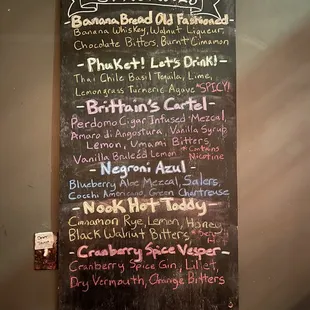 Banana Bread Old Fashioned
Banana Whiskey, Walnut Liqueur,
Chocolate Bitters, Burnt Cinnamon
-Phuket! Let's Drink!-
Thai Chile Basil Tequila, Lime,
Lemongrass Turmeric Agave *SPICY!
-Brittain's Cartel-
Perdomo Cigar Infused Mezcal,
Amaro di Angostura, Vanilla Syrup
Lemon, Umami Bitters,
Vanilla Bruleed Lemon *Contains
Nicotine
-Negroni Azul-
Blueberry Aloe Mezcal, Salers,
Cocchi Americano, Green Chartreuse
-Nook Hot Toddy-
Cinnamon Rye, Lemon, Honey,
Black Walnut Bitters *Served
Hot
-Cranberry Spice Vesper-
Cranberry Spice Gin, Lillet,
Dry Vermouth, Orange Bitters